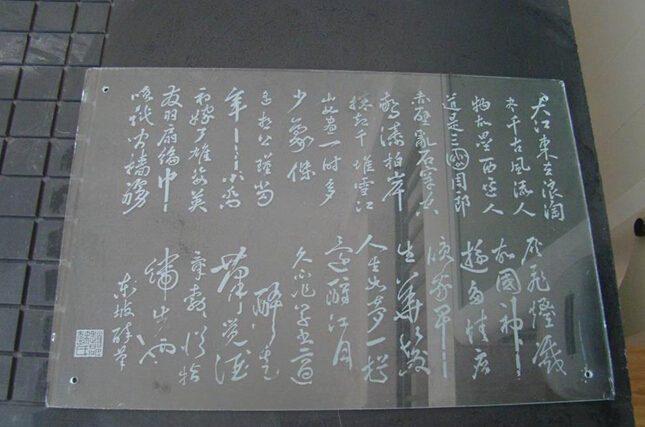 大江東去浪淘
盡千古風流人
物故壘西邊人
道是三國周郎
赤壁亂石穿空
驚濤拍岸
捲起千堆雪江
山如畫一時多
少豪傑
遙想公瑾當
年小喬
初嫁了雄姿英
發羽扇綸巾
笑談間檣櫓
灰飛煙滅
故國神
遊多情應
笑我早
生華髮
人生如夢一樽
還酹江月
久不作草書適
醉走
筆覺酒
氣勃勃從指
端出也
東坡醉筆